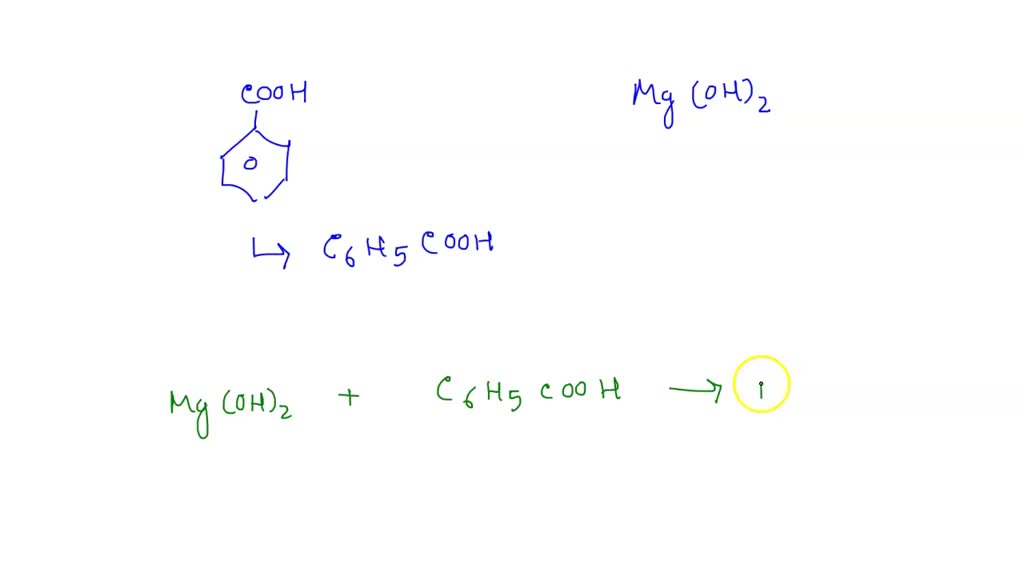 COOH
Mg (OH)2
↳ C6H5COOH
Mg (OH)2 + C6H5COOH →